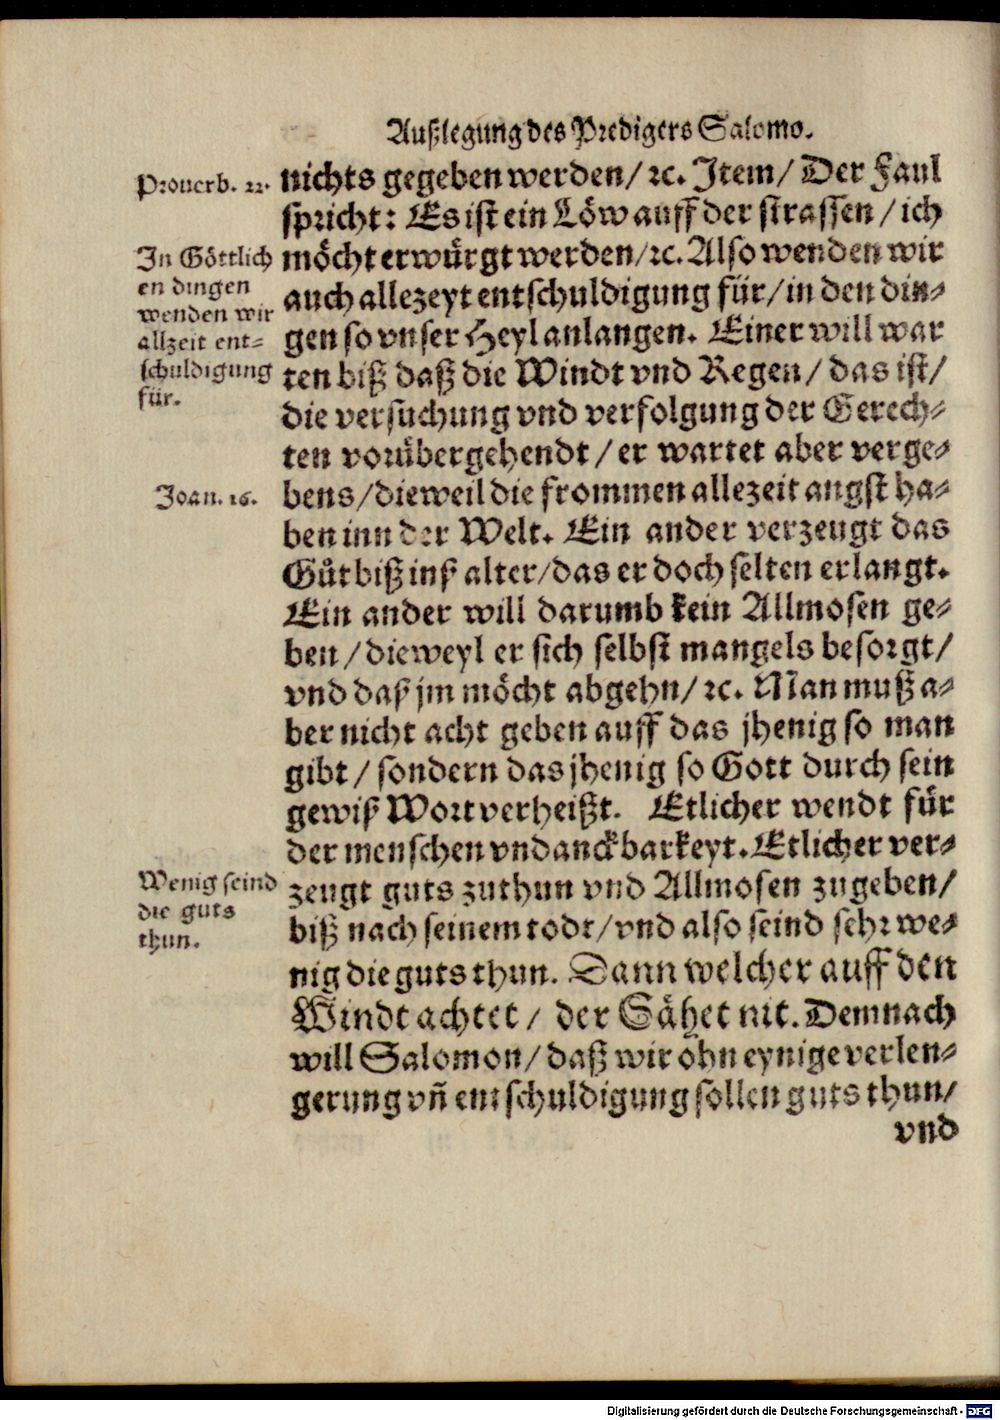 Außlegung des Predigers Salomo.
Prouerb. 22.
nichts gegeben werden/ ꝛc. Item/ Der Faul
spricht: Es ist ein Löw auff der strassen/ ich
möcht erwürgt werden/ ꝛc. Also wenden wir
auch allezeyt entschuldigung für/ in den din⸗
gen so vnser Heyl anlangen. Einer will war
ten biß daß die Windt vnd Regen/ das ist/
die versuchung vnd verfolgung der Gerech⸗
ten vorübergehendt/ er wartet aber verge⸗
bens/ dieweil die frommen allezeit angst ha⸗
ben inn der Welt. Ein ander verzeugt das
Gůt biß inß alter/ das er doch selten erlangt.
Ein ander will darumb kein Allmosen ge⸗
ben/ dieweyl er sich selbst mangels besorgt/
vnd daß jm möcht abgehn/ ꝛc. Man muß a⸗
ber nicht acht geben auff das jhenig so man
gibt/ sondern das jhenig so Gott durch sein
gewiß Wort verheißt. Etlicher wendt für
der menschen vndanckbarkeyt. Etlicher ver⸗
zeugt guts zuthun vnd Allmosen zugeben/
biß nach seinem todt/ vnd also seind sehr we⸗
nig die guts thun. Dann welcher auff den
Windt achtet/ der Sähet nit. Demnach
will Salomon/ daß wir ohn eynige verlen⸗
gerung vñ entschuldigung sollen guts thun/
vnd
In Göttlich
en dingen
wenden wir
allzeit ent⸗
schuldigung
für.
Joan. 16.
Wenig seind
die guts
thun.
Digitalisierung gefördert durch die Deutsche Forschungsgemeinschaft - DFG